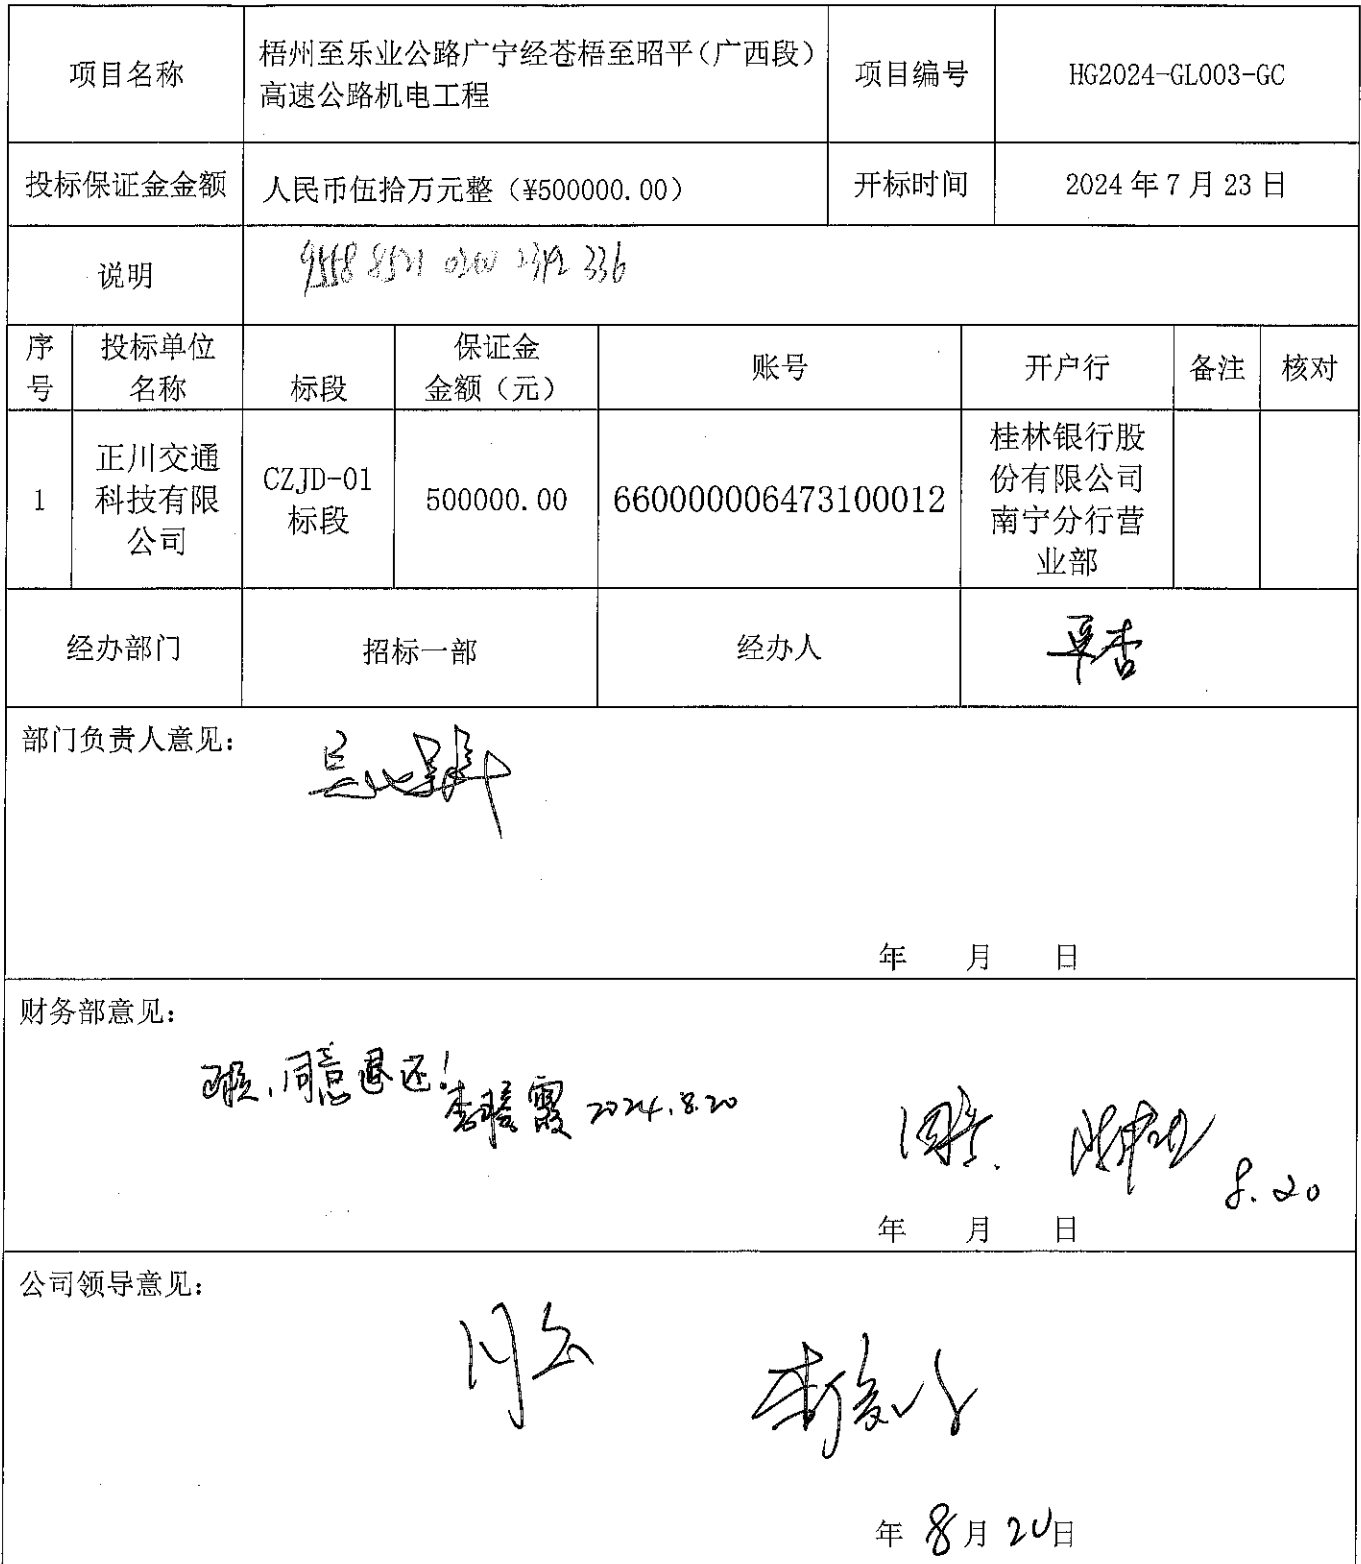 项目名称
梧州至乐业公路广宁经苍梧至昭平(广西段)
高速公路机电工程
项目编号
HG2024-GL003-GC
投标保证金金额
人民币伍拾万元整（¥500000.00）
开标时间
2024年7月23日
说明
336
序
号
投标单位
名称
标段
保证金
金额（元）
账号
开户行
备注
核对
1
正川交通
科技有限
公司
CZJD-01
标段
500000.00
660000006473100012
桂林银行股
份有限公司
南宁分行营
业部
经办部门
招标一部
经办人
部门负责人意见：
年 月 日
财务部意见：
同意退还！
2024.8.20
8.20
年 月 日
公司领导意见：
年 8月 20日